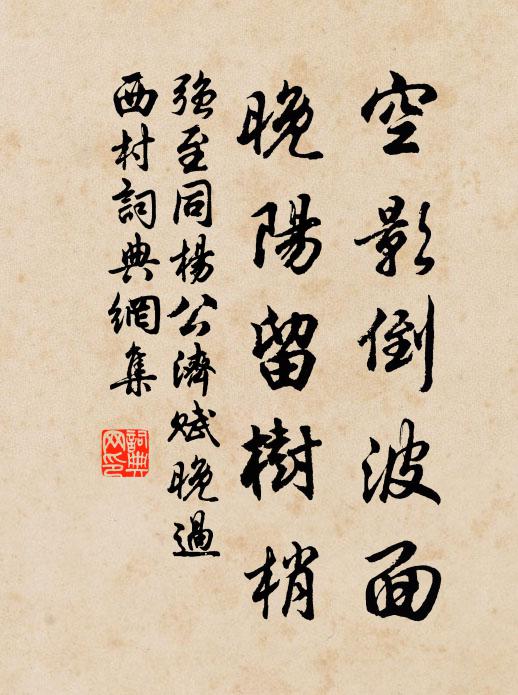 空影倒波面
晚陽留樹梢
強至同楊公濟賦晚過
西村詞典網集
詞典
网印